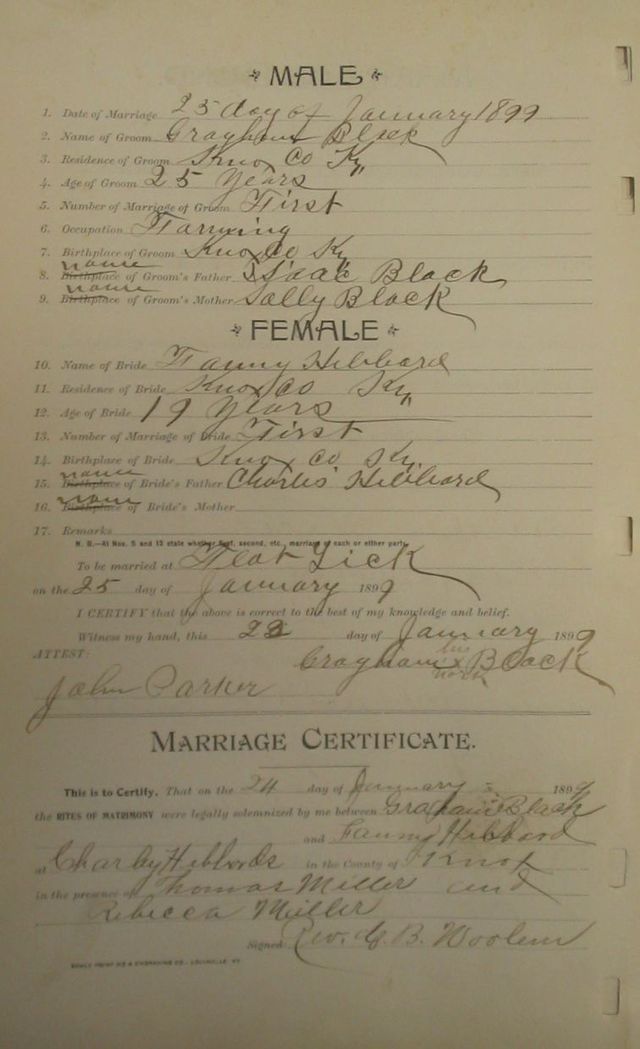 MALE
1. Date of Marriage 25 day of January 1899
2. Name of Groom Grayham Black
3. Residence of Groom Knox Co Ky
4. Age of Groom 25 Years
5. Number of Marriage of Groom First
6. Occupation Farming
7. Birthplace of Groom Knox Co Ky
name
8. Birthplace of Groom's Father Isaac Black
name
9. Birthplace of Groom's Mother Sally Black
FEMALE
10. Name of Bride Fanny Hibbard
11. Residence of Bride Knox Co Ky
12. Age of Bride 19 Years
13. Number of Marriage of Bride First
14. Birthplace of Bride Knox Co Ky
name
15. Birthplace of Bride's Father Charles Hibbard
name
16. Birthplace of Bride's Mother
17. Remarks
N. B.—At Nos. 5 and 13 state whether first, second, etc., marriage of each or either party.
To be married at Flat Lick
on the 25 day of January 1899
I CERTIFY that the above is correct to the best of my knowledge and belief.
Witness my hand, this 23 day of January 1899
ATTEST: his
Grayham x Black
mark
John Parker
MARRIAGE CERTIFICATE.
This is to Certify, That on the 24 day of January 1899
the RITES OF MATRIMONY were legally solemnized by me between Graham Black
and Fanny Hibbord
at Charley Hibbords in the County of Knox
in the presence of Thomas Miller and
Rebecca Miller
Signed Rev. G. B. Woolum